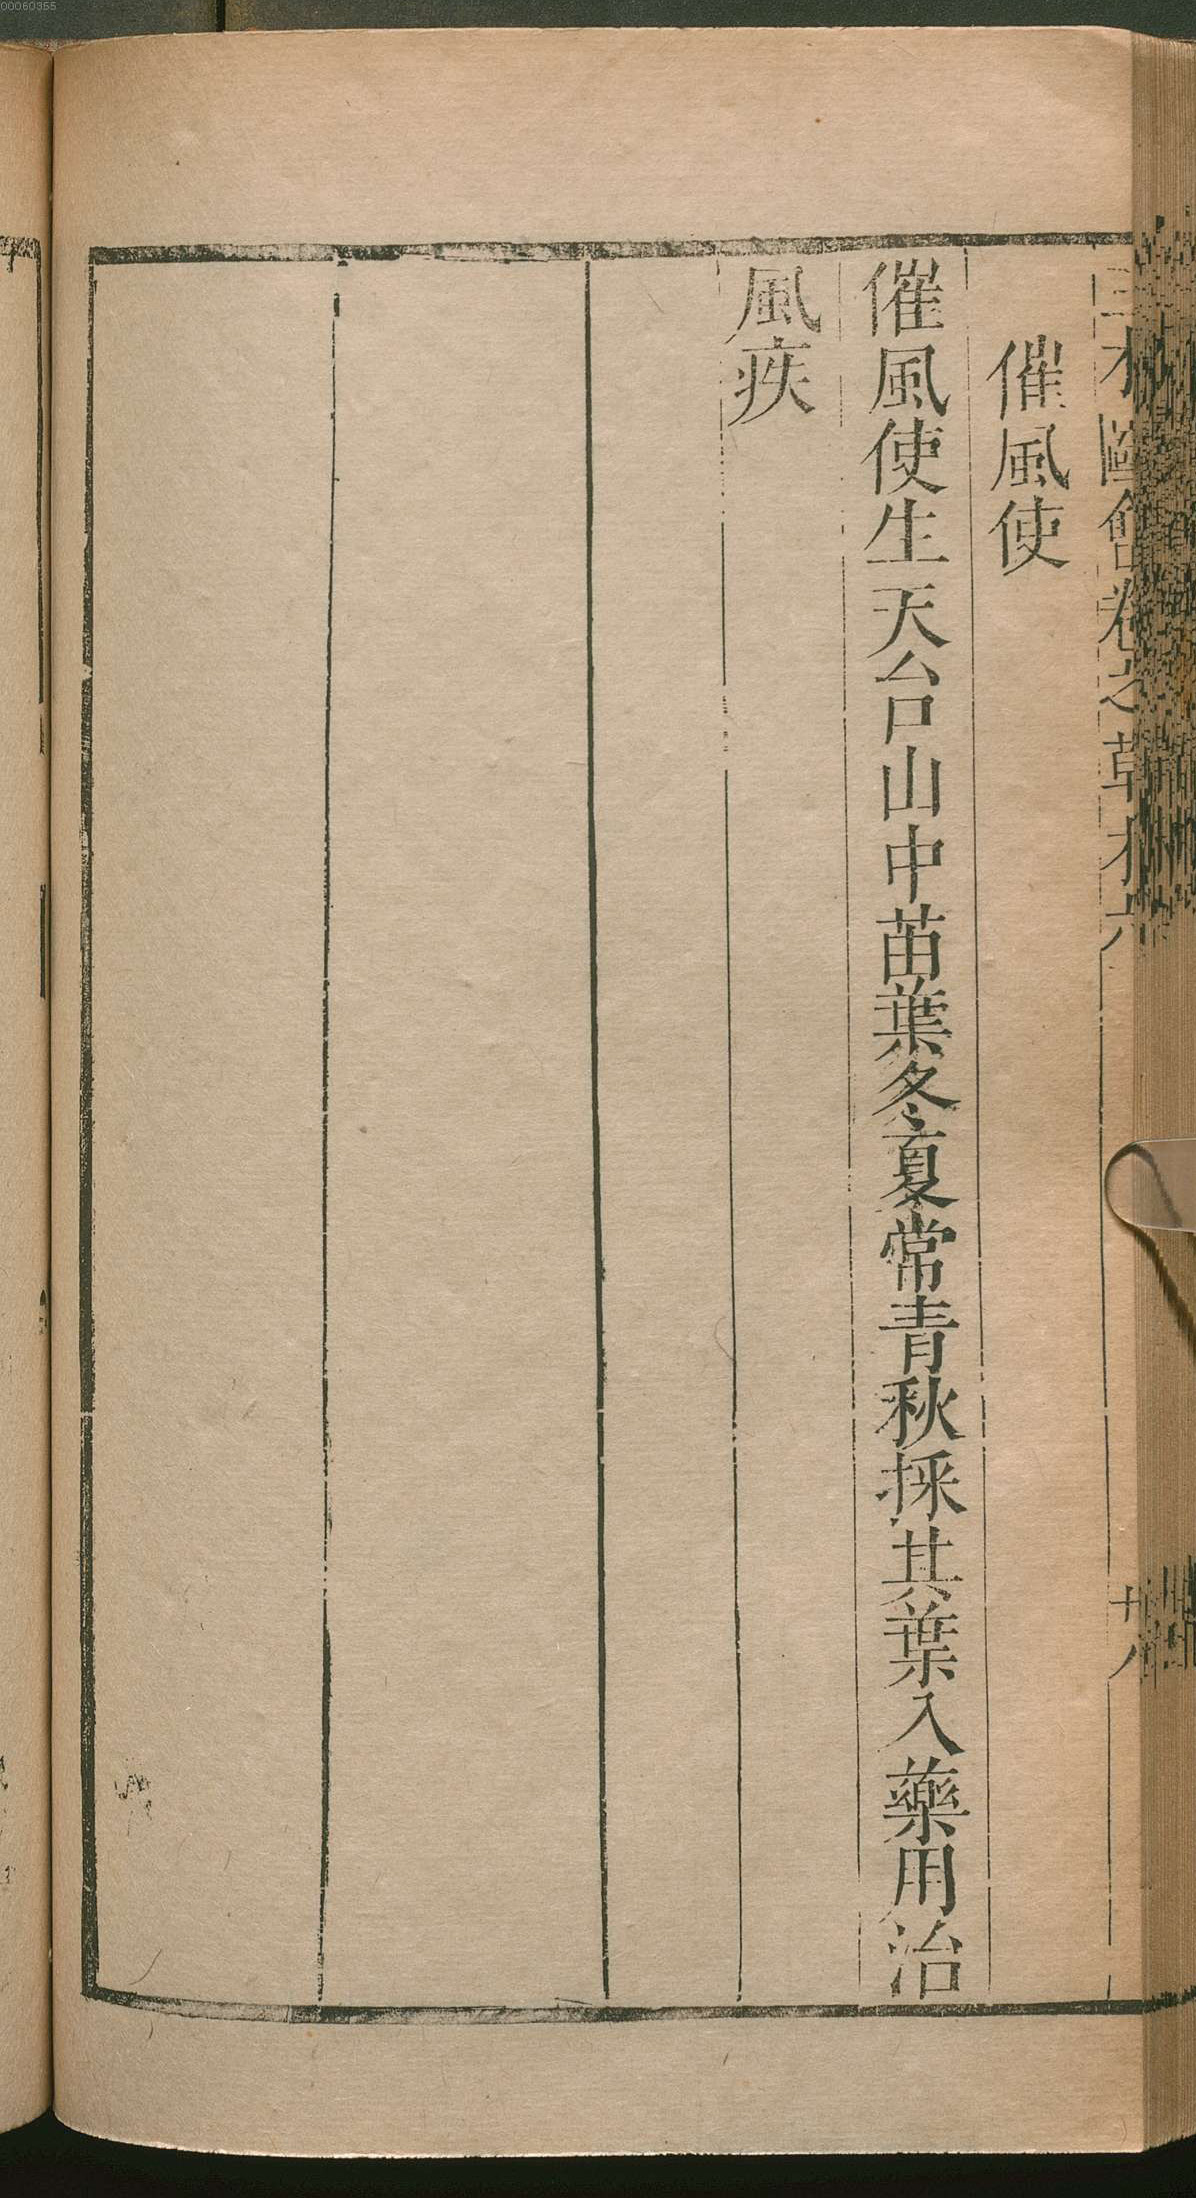 00060355
三才圖會卷之草木六
廿八
催風使
催風使生天台山中苗葉冬夏常青秋採其葉入藥用治
風疾